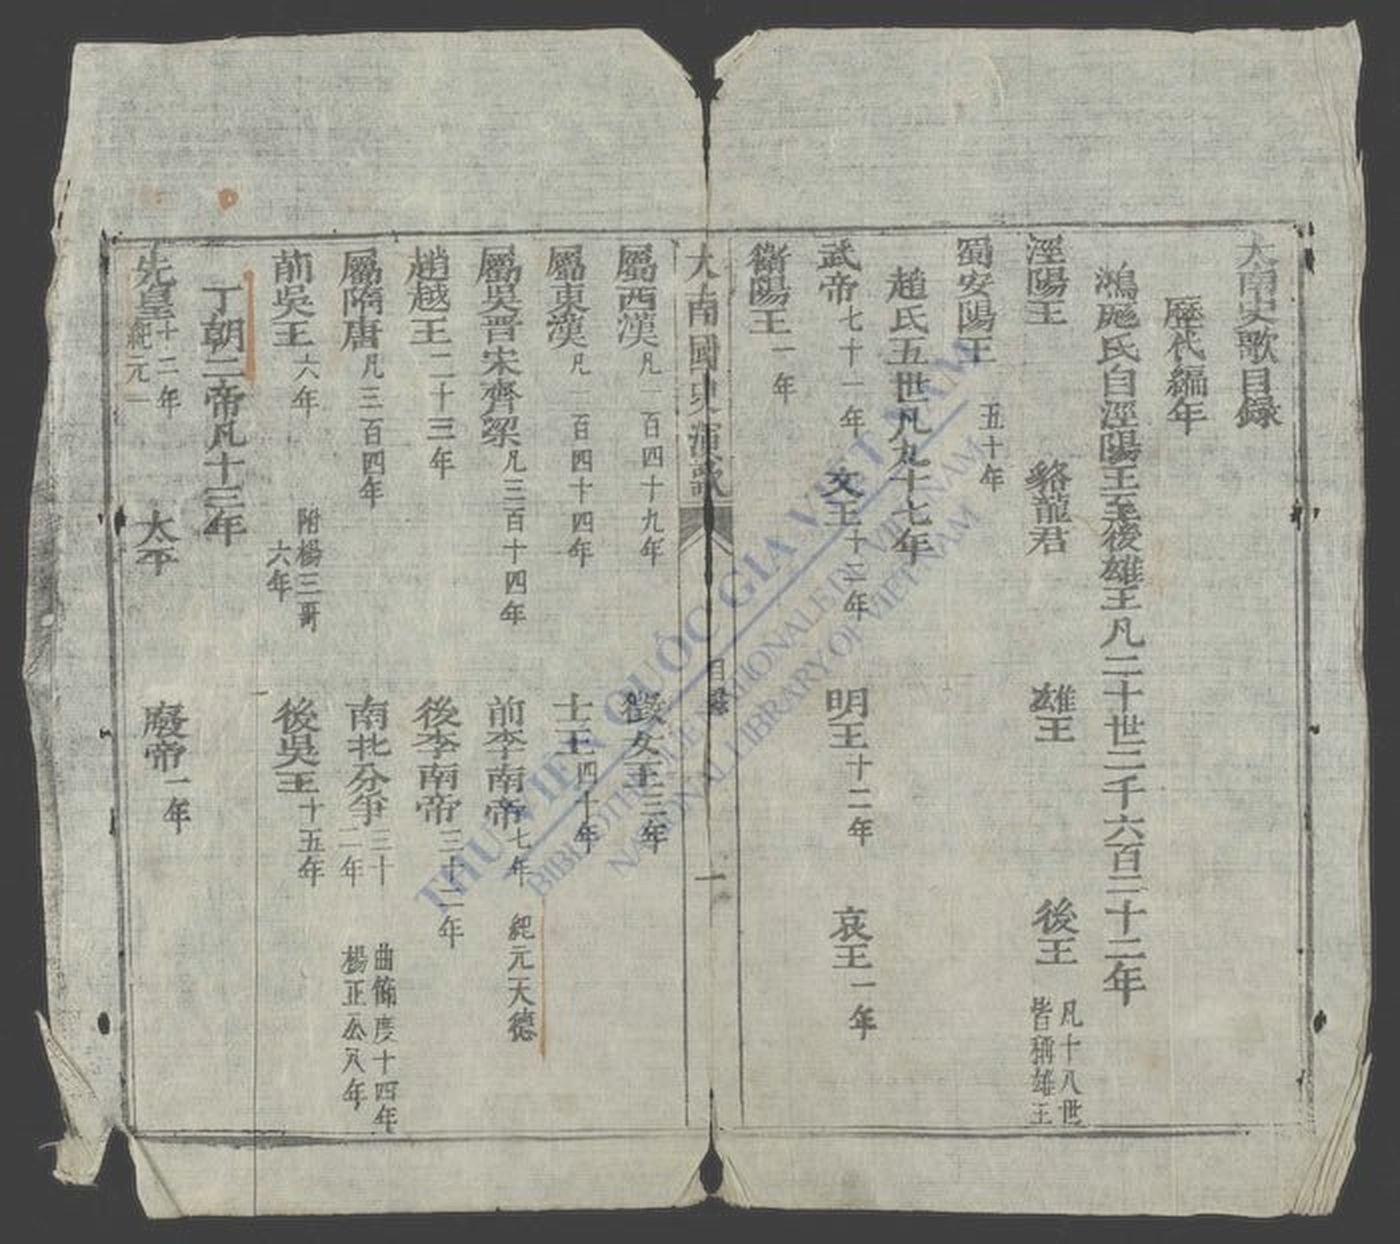 大南史歌目録
歷代編年
鴻厖氏自涇陽王至後雄王凡二十世二千六百二十二年
涇陽王 貉龍君 雄王 後王 凡十八世皆稱雄王
蜀安陽王 五十年
趙氏五世凡九十七年
武帝 七十一年 文王 十二年 明王 十二年 哀王 一年
衛陽王 一年
大南國史演歌 目録 一
屬西漢 凡一百四十九年 徵女王 三年
屬東漢 凡一百四十四年 士王 四十年
屬吳晋宋齊梁 凡三百十四年 前李南帝 七年 紀元天德
趙越王 二十三年 後李南帝 三十二年
屬隋唐 凡三百四年 南北分爭 三十二年 曲節度十四年 楊正公八年
前吳王 六年 附楊三哥六年 後吳王 十五年
丁朝二帝凡十三年
先皇 十二年 紀元一 太平 廢帝 一年
THƯ VIỆN QUỐC GIA VIỆT NAM
BIBLIOTHEQUE NATIONALE DU VIETNAM
NATIONAL LIBRARY OF VIETNAM